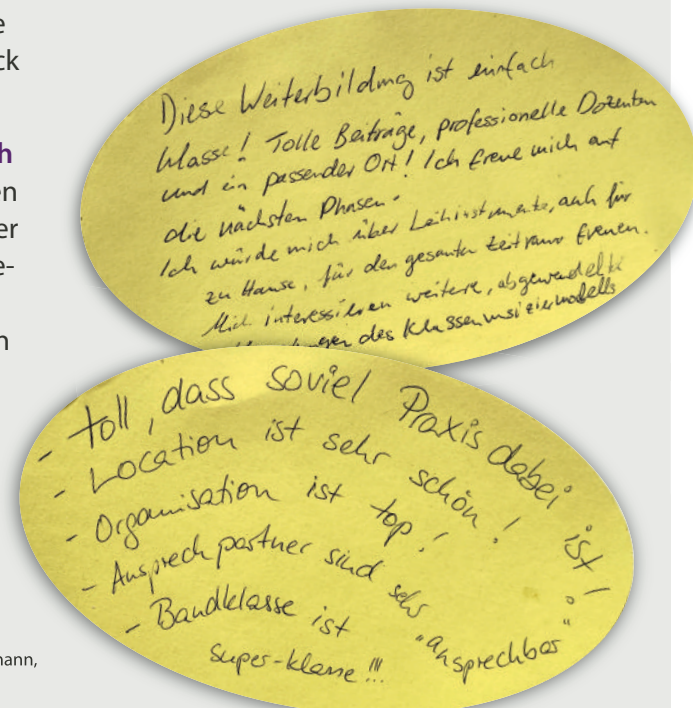 e
ck
h
en
er
e-
n
mann,
Diese Weiterbildung ist einfach
klasse! Tolle Beiträge, professionelle Dozenten
und ein passender Ort! Ich freue mich auf
die nächsten Phasen.
Ich würde mich über Leihinstrumente, auch für
zu Hause, für den gesamten Zeitraum freuen.
Mich interessieren weitere, abgewandelte
des Klassenmusiziermodells
- toll, dass soviel Praxis dabei ist!
- Location ist sehr schön!
- Organisation ist top!
- Ansprechpartner sind sehr "ansprechbar"
- Bandklasse ist
super-klasse!!!